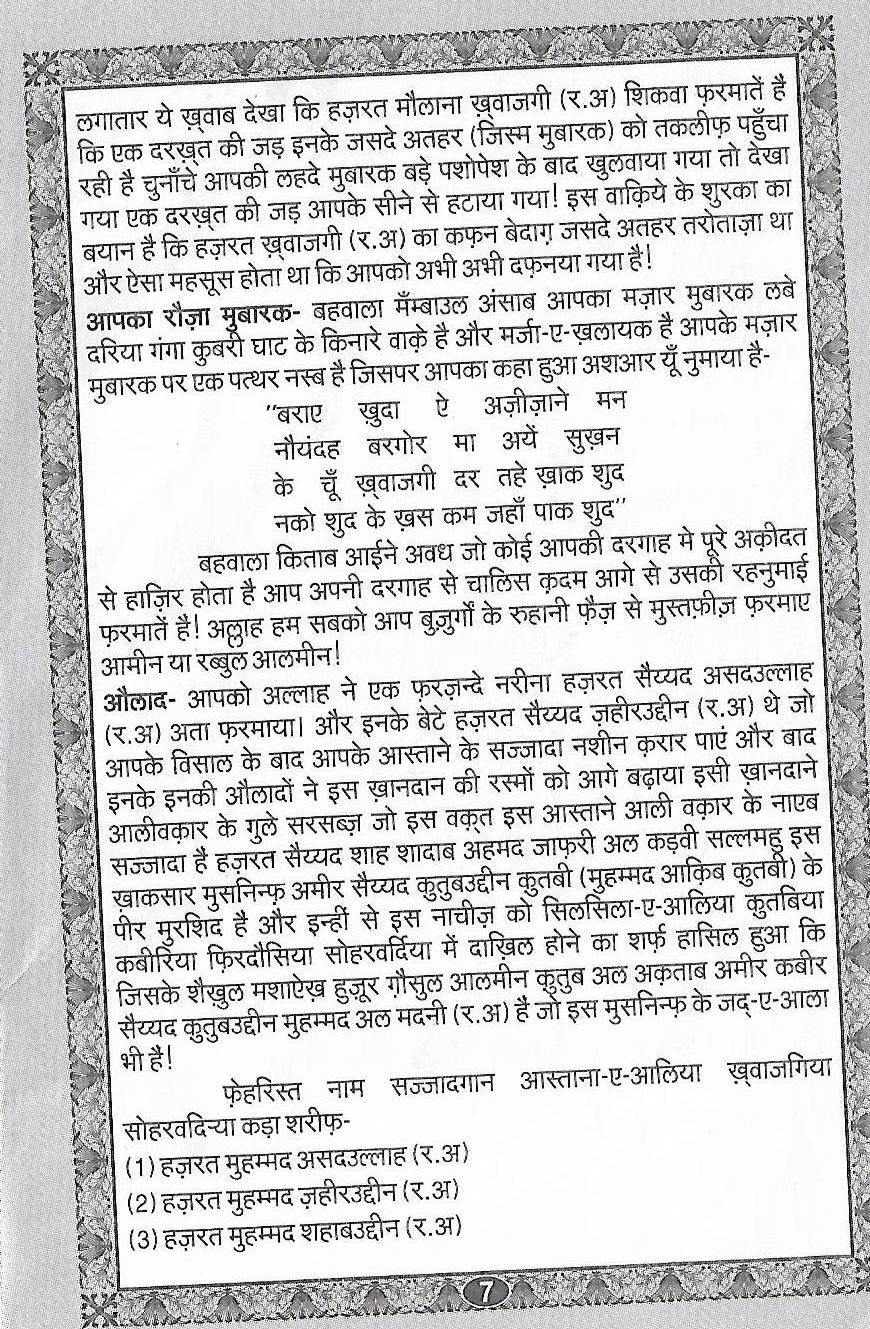 लगातार ये ख़्वाब देखा कि हज़रत मौलाना ख़्वाजगी (र.अ) शिकवा फ़रमातें है
कि एक दरख़्त की जड़ इनके जसदे अतहर (जिस्म मुबारक) को तकलीफ़ पहुँचा
रही है चुनाँचे आपकी लहदे मुबारक बड़े पशोपेश के बाद खुलवाया गया तो देखा
गया एक दरख़्त की जड़ आपके सीने से हटाया गया! इस वाक़िये के शुरका का
बयान है कि हज़रत ख़्वाजगी (र.अ) का कफ़न बेदाग़ जसदे अतहर तरोताज़ा था
और ऐसा महसूस होता था कि आपको अभी अभी दफ़नया गया है!
आपका रौज़ा मुबारक- बहवाला मँम्बाउल अंसाब आपका मज़ार मुबारक लबे
दरिया गंगा कुबरी घाट के किनारे वाक़े है और मर्जा-ए-ख़लायक है आपके मज़ार
मुबारक पर एक पत्थर नस्ब है जिसपर आपका कहा हुआ अशआर यूँ नुमाया है-
"बराए ख़ुदा ऐ अज़ीज़ाने मन
नौयंदह बरगोर मा अयें सुख़न
के चूँ ख़्वाजगी दर तहे ख़ाक शुद
नको शुद के ख़स कम जहाँ पाक शुद"
बहवाला किताब आईने अवध जो कोई आपकी दरगाह मे पूरे अक़ीदत
से हाज़िर होता है आप अपनी दरगाह से चालिस क़दम आगे से उसकी रहनुमाई
फ़रमातें है! अल्लाह हम सबको आप बुज़ुर्गों के रुहानी फ़ैज़ से मुस्तफ़ीज़ फ़रमाए
आमीन या रब्बुल आलमीन!
औलाद- आपको अल्लाह ने एक फ़रज़न्दे नरीना हज़रत सैय्यद असदउल्लाह
(र.अ) अता फ़रमाया। और इनके बेटे हज़रत सैय्यद ज़हीरउद्दीन (र.अ) थे जो
आपके विसाल के बाद आपके आस्ताने के सज्जादा नशीन क़रार पाएं और बाद
इनके इनकी औलादों ने इस ख़ानदान की रस्मों को आगे बढ़ाया इसी ख़ानदाने
आलीवक़ार के गुले सरसब्ज़ जो इस वक़्त इस आस्ताने आली वक़ार के नाएब
सज्जादा है हज़रत सैय्यद शाह शादाब अहमद जाफ़री अल कड़वी सल्लमहु इस
ख़ाकसार मुसनिन्फ़ अमीर सैय्यद क़ुतुबउद्दीन क़ुतबी (मुहम्मद आक़िब क़ुतबी) के
पीर मुरशिद है और इन्हीं से इस नाचीज़ को सिलसिला-ए-आलिया क़ुतबिया
कबीरिया फ़िरदौसिया सोहरवर्दिया में दाख़िल होने का शर्फ़ हासिल हुआ कि
जिसके शैख़ुल मशाऐख़ हुज़ूर ग़ौसुल आलमीन क़ुतुब अल अक़ताब अमीर कबीर
सैय्यद क़ुतुबउद्दीन मुहम्मद अल मदनी (र.अ) है जो इस मुसनिन्फ़ के जद्-ए-आला
भी है!
फ़ेहरिस्त नाम सज्जादगान आस्ताना-ए-आलिया ख़्वाजगिया
सोहरवदिर्‍या कड़ा शरीफ़-
(1) हज़रत मुहम्मद असदउल्लाह (र.अ)
(2) हज़रत मुहम्मद ज़हीरउद्दीन (र.अ)
(3) हज़रत मुहम्मद शहाबउद्दीन (र.अ)
7